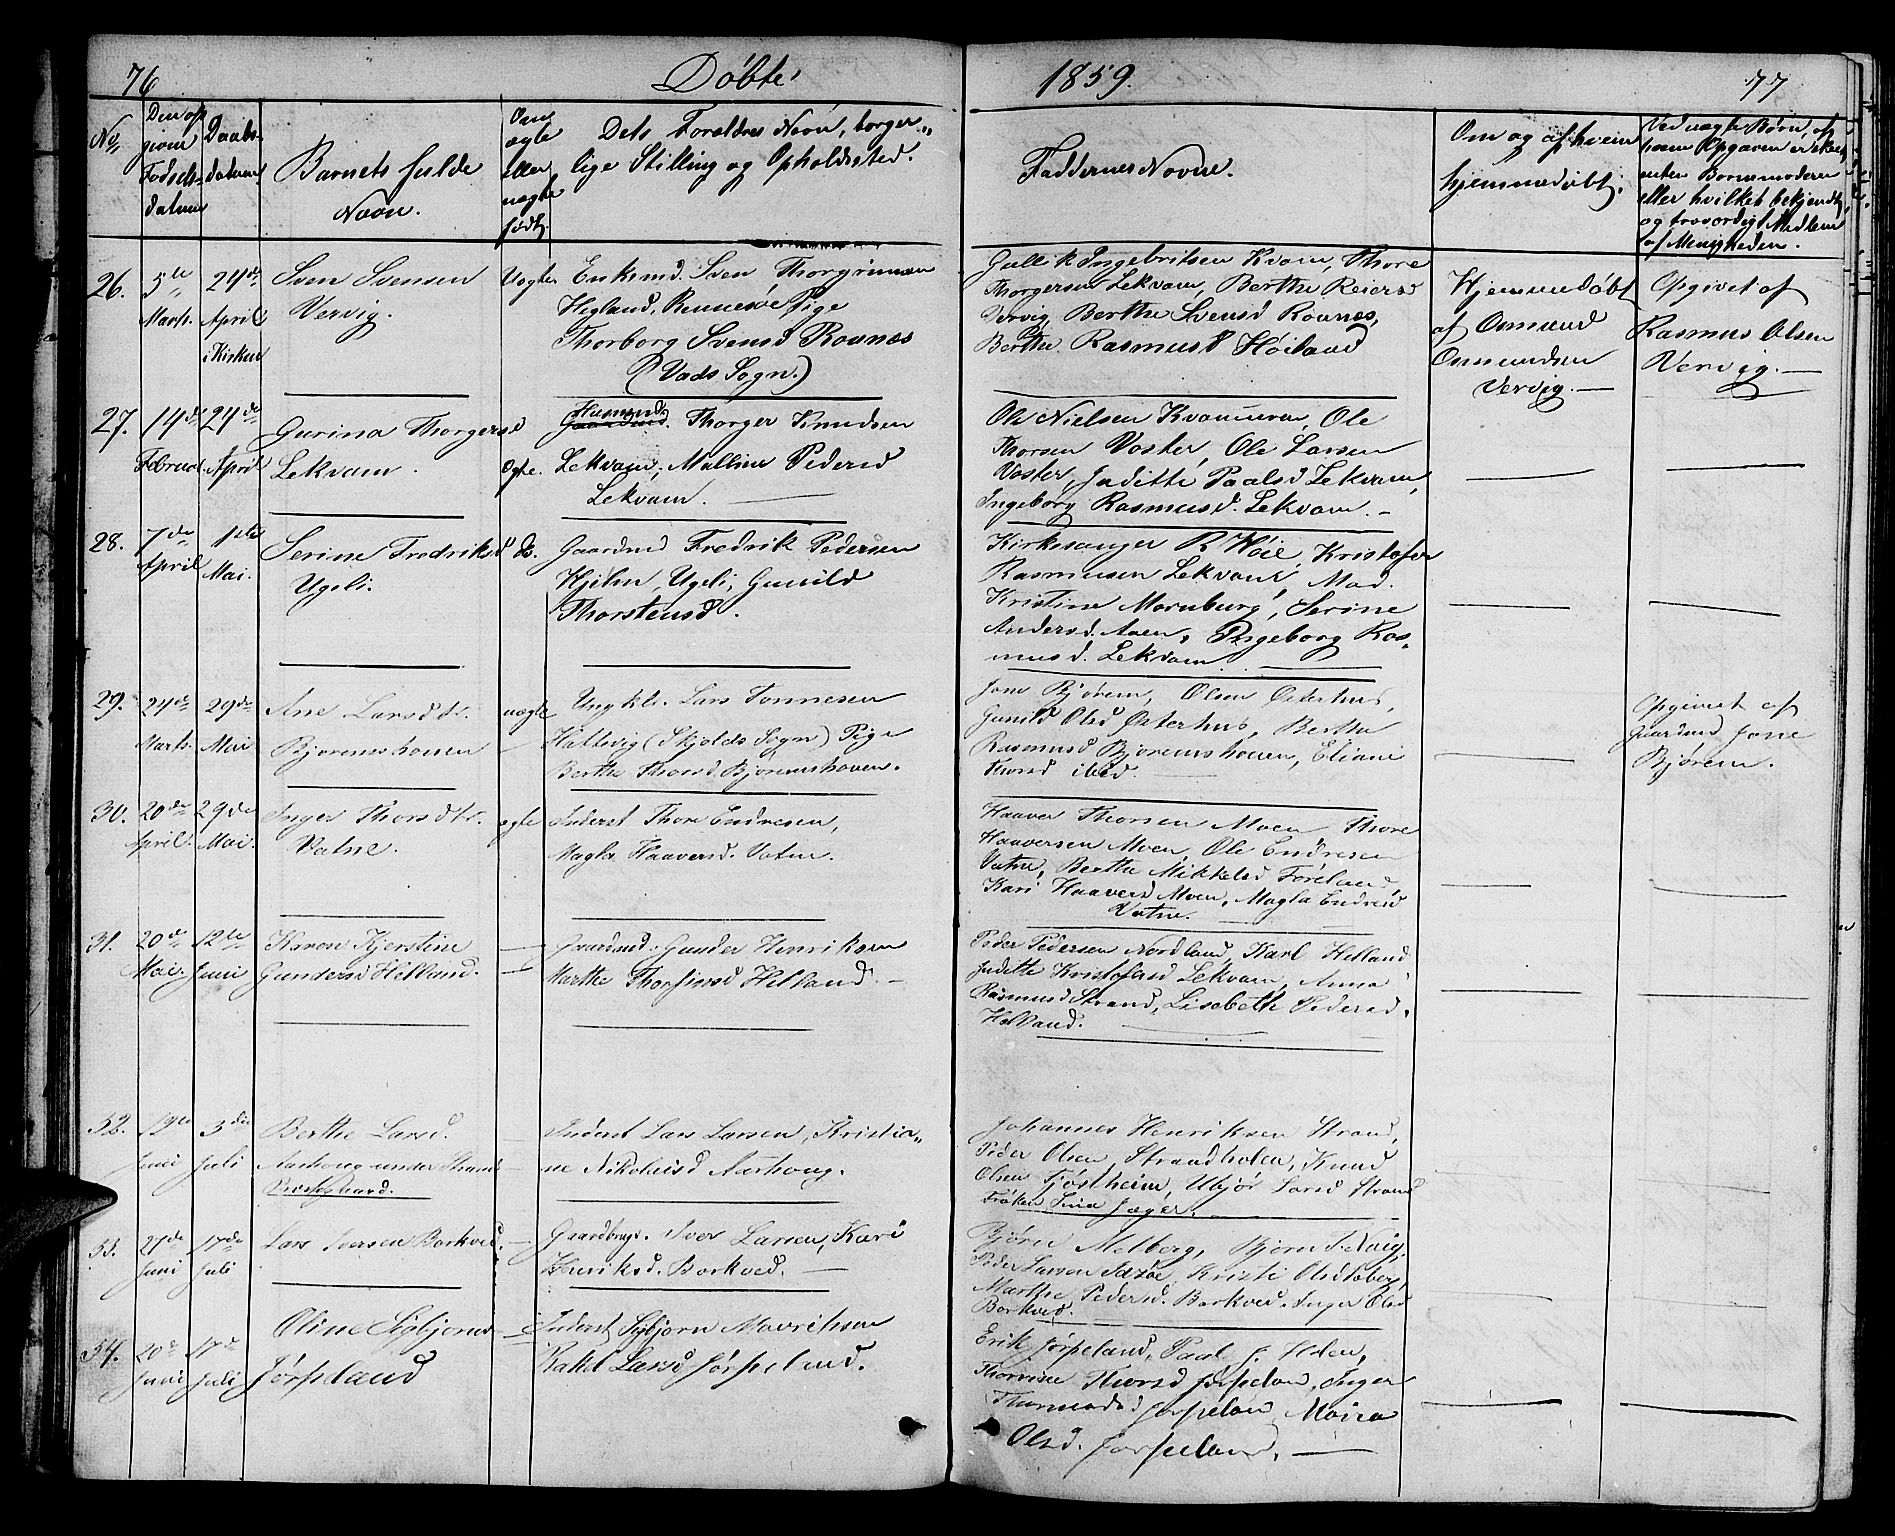 76
Døbte
1859.
77
No
Den op
givne
Fødsels
datum
Daabs
datum
Barnets fulde
Navn.
Om
ægte
eller
uægte
født.
Dets Foreldres Navn, borger„
lige Stilling og Opholdssted.
Faddernes Navne.
Om og af hvem
hjemmedøbt.
Ved uægte Børn, af
hvem Opgaven er skeet
enten Barnemoderen
eller hvilket bekjendt
og troværdigt Medlem
af Menigheden.
26.
5te
Marts.
24de
April
i Kirken
Sven Svensen
Vervig.
Uægte
Enkemd. Sven Thorgrimsen
Hegland, Rennesøe Pige
Thorborg Svensd Rovnæs
(Vads Sogn.)
Gullik Ingebritsen Kvam, Thore
Thorgersen Lekvam, Berthe Reiersd
Vervig Berthe Svensd Rovnæs,
Berthe Rasmusd Høiland
Hjemmedøbt
af Osmund
Osmundsen
Vervig. —
Opgivet af
Rasmus Olsen
Vervig. —
27.
14de
Februar.
24de
April
Gurina Thorgersd
Lekvam.
ægte.
Husmand
Gaardmd. Thorger Knudsen
Lekvam, Malline Pedersd
Lekvam. —
Ole Nielsen Kvammen, Ole
Thorsen Voster, Ole Larsen
Voster, Juditte Paalsd Lekvam,
Ingeborg Rasmusd. Lekvam. —
28.
7de
April
1ste
Mai.
Serine Fredriksd
Ugeli.
do.
Gaardmd Fredrik Pedersen
Hjelm, Ugeli, Gunild
Thorstensd.
Kirkesanger R Høie, Kristofer
Rasmusen Lekvam, Mad.
Kristine Mornburg, Serine
Andersd. Aaen, Ingeborg Ras„
musd. Lekvam
29.
24de
Marts.
29de
Mai
Ane Larsdtr.
Bjøremshoven
uægte
Ungkl. Lars Tønnesen
Hallevig (Skjolds Sogn) Pige
Berthe Thorsd. Bjøremshoven.
Jone Bjørem, Olsen Østerhus,
Gunild Olsd Østerhus, Berthe
Rasmusd Bjøremshoven, Eliane
Thorsd ibid.
Opgivet af
Gaardmd Jone
Bjørem.
30.
20de
April.
29de
Mai.
Inger Thorsdtr.
Vatne.
ægte
Inderst Thore Endresen,
Magla Haaversd. Vatne.
Haaver Thorsen Moen Thore
Haaversen Moen, Ole Endresen
Vatne, Berthe Mikkelsd Føreland
Kari Haaversd Moen, Magla Endresd
Vatne.
31.
20de
Mai.
12te
Juni
Karen Kjerstine
Gundersd Helland.
Gaardmd. Gunder Henriksen
Marthe Thorfinsd Helland. —
Peder Pedersen Nordland, Karl Helland
Juditte Kristofersd Lekvam, Anna
Rasmusd Strand, Lisebeth Pedersd.
Helland.
32.
19de
Juni
3die
Juli
Berthe Larsd.
Aarhoug under Strand
Præstegaard.
Inderst Lars Larsen, Kristia„
ne Nikolaisd Aarhoug.
Johannes Henriksen Strand,
Peder Olsen Strandholen, Knud
Olsen Fjøstheim, Ubjør Larsd Strand
Frøken Sina Jæger.
33.
27de
Juni
17de
Juli
Lars Iversen Barkved.
Gaardbrug. Iver Larsen, Kari
Henriksd. Barkved. —
Bjørn Melberg, Bjørn S. Vaig,
Peder Larsen Idsøe, Kristi Olsd
Marthe Pedersd. Barkved. Inger Olsd
Barkved.
34.
20de
Juni
17de
Juli
Oline Sigbjørnsd
Jørpeland
Inderst Sigbjørn Mavritsen
Rakel Larsd Jørpeland.
Erik Jørpeland, Paal J. Holen,
Thorsd Jørpeland, Inger
Jørpeland Maria
Olsd. Jørpeland. —